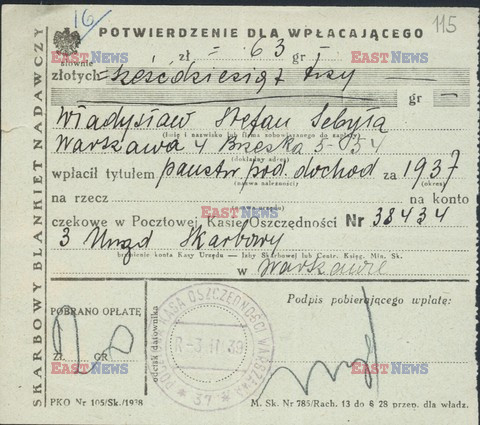 16
115
POTWIERDZENIE DLA WPŁACAJĄCEGO
zł = 63 gr =
słownie
złotych = sześćdziesiąt trzy —
gr —
Władysław Stefan Sebyła
(Imię i nazwisko lub firma zobowiązanego do zapłaty)
Warszawa 4 Brzeska 5 - 54
(dokładny adres)
wpłacił tytułem państw. pod. dochod za 1937
(nazwa należności) (okres)
na rzecz na konto
(nazwa urzędu)
czekowe w Pocztowej Kasie Oszczędności Nr 38434
3 Urząd Skarbowy
brzmienie konta Kasy Urzędu — Izby Skarbowej lub Centr. Księg. Min. Sk.
w Warszawie
SKARBOWY BLANKIET NADAWCZY
POBRANO OPŁATĘ
ZŁ. GR
odcisk datownika
KASA OSZCZĘDNOŚCI WARSZAWA
* 37 *
Podpis pobierającego wpłatę:
PKO Nr 105/Sk./1938
M. Sk. Nr 785/Rach. 13 do § 28 przep. dla władz.
EAST NEWS
EAST NEWS
EAST NEWS
EAST NEWS
EAST NEWS